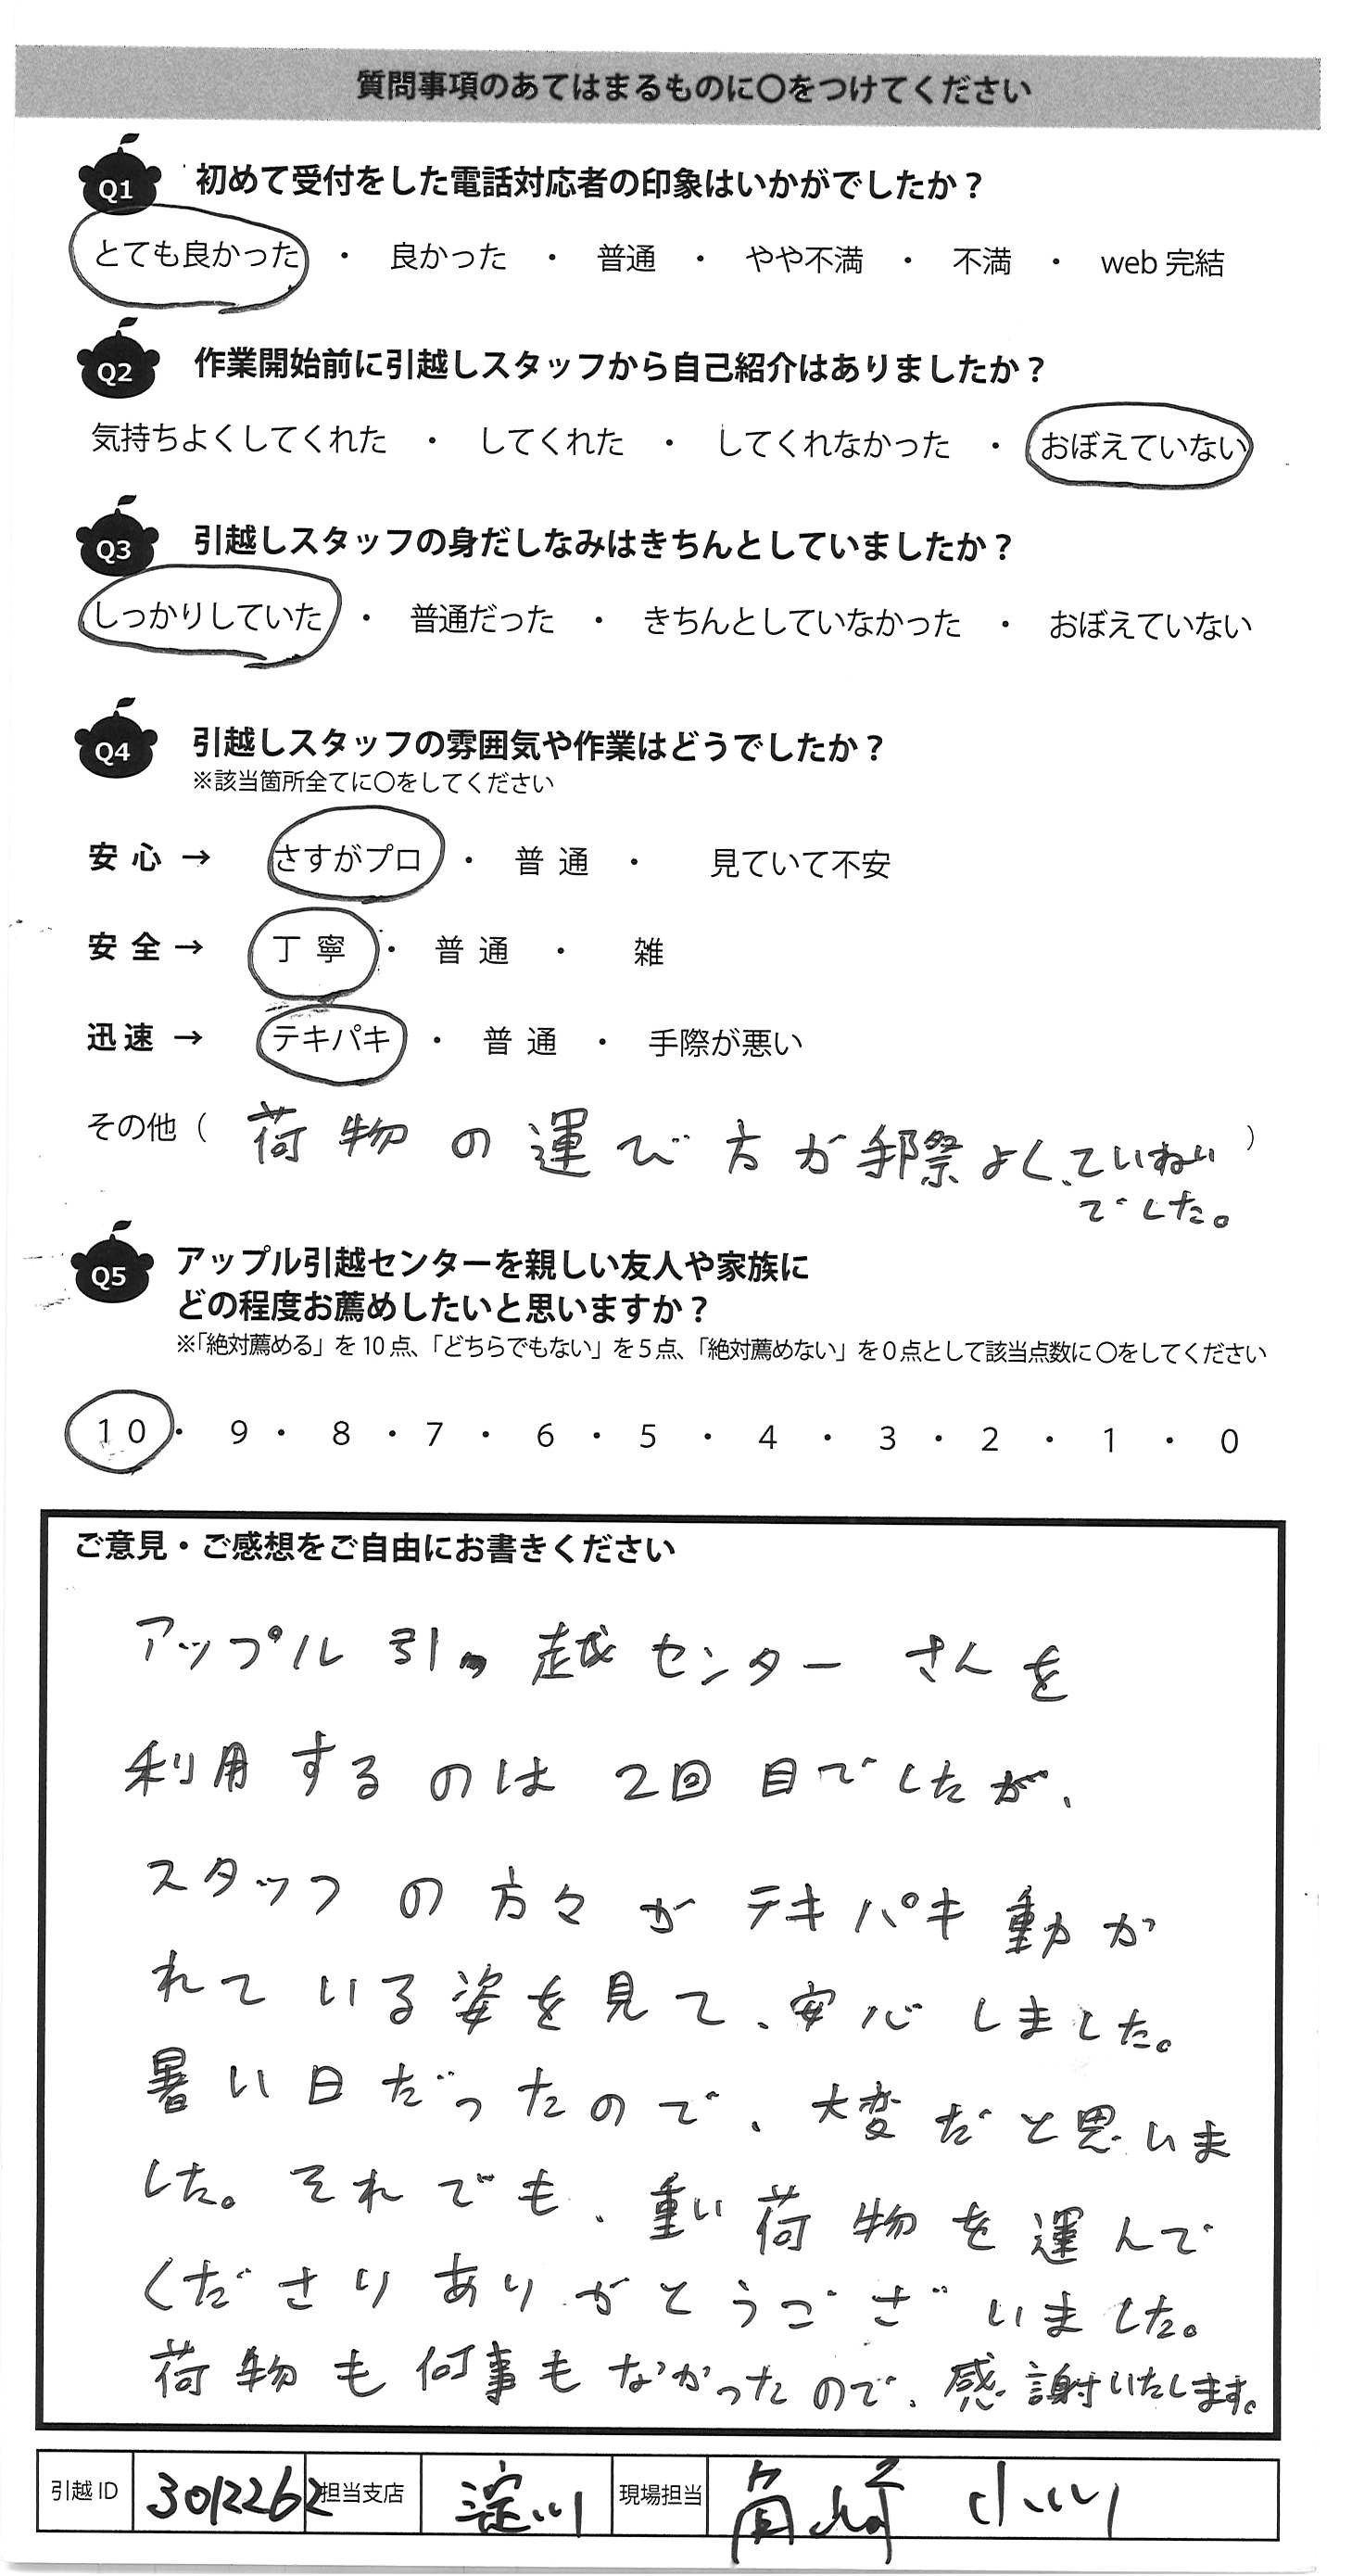 質問事項のあてはまるものに〇をつけてください
Q1 初めて受付をした電話対応者の印象はいかがでしたか？
とても良かった ・ 良かった ・ 普通 ・ やや不満 ・ 不満 ・ web 完結
Q2 作業開始前に引越しスタッフから自己紹介はありましたか？
気持ちよくしてくれた ・ してくれた ・ してくれなかった ・ おぼえていない
Q3 引越しスタッフの身だしなみはきちんとしていましたか？
しっかりしていた ・ 普通だった ・ きちんとしていなかった ・ おぼえていない
Q4 引越しスタッフの雰囲気や作業はどうでしたか？
※該当箇所全てに〇をしてください
安心 → さすがプロ ・ 普通 ・ 見ていて不安
安全 → 丁寧 ・ 普通 ・ 雑
迅速 → テキパキ ・ 普通 ・ 手際が悪い
その他（ 荷物の運び方が手際よく、ていねい ）
でした。
Q5 アップル引越センターを親しい友人や家族に
どの程度お薦めしたいと思いますか？
※「絶対薦める」を 10 点、「どちらでもない」を 5 点、「絶対薦めない」を 0 点として該当点数に 〇をしてください
10 ・ 9 ・ 8 ・ 7 ・ 6 ・ 5 ・ 4 ・ 3 ・ 2 ・ 1 ・ 0
ご意見・ご感想をご自由にお書きください
アップル引越センターさんを
利用するのは2回目でしたが、
スタッフの方々がテキパキ動か
れている姿を見て、安心しました。
暑い日だったので、大変だと思いま
した。それでも、重い荷物を運んで
くださりありがとうございました。
荷物も何事もなかったので、感謝いたします。
引越 ID 3012262 担当支店 淀川 現場担当 角崎 小川